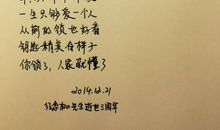 一生只够爱一个人
从前的锁也好看
钥匙精美有样子
你锁了，人家就懂了
2014.12.21
先生逝世三周年